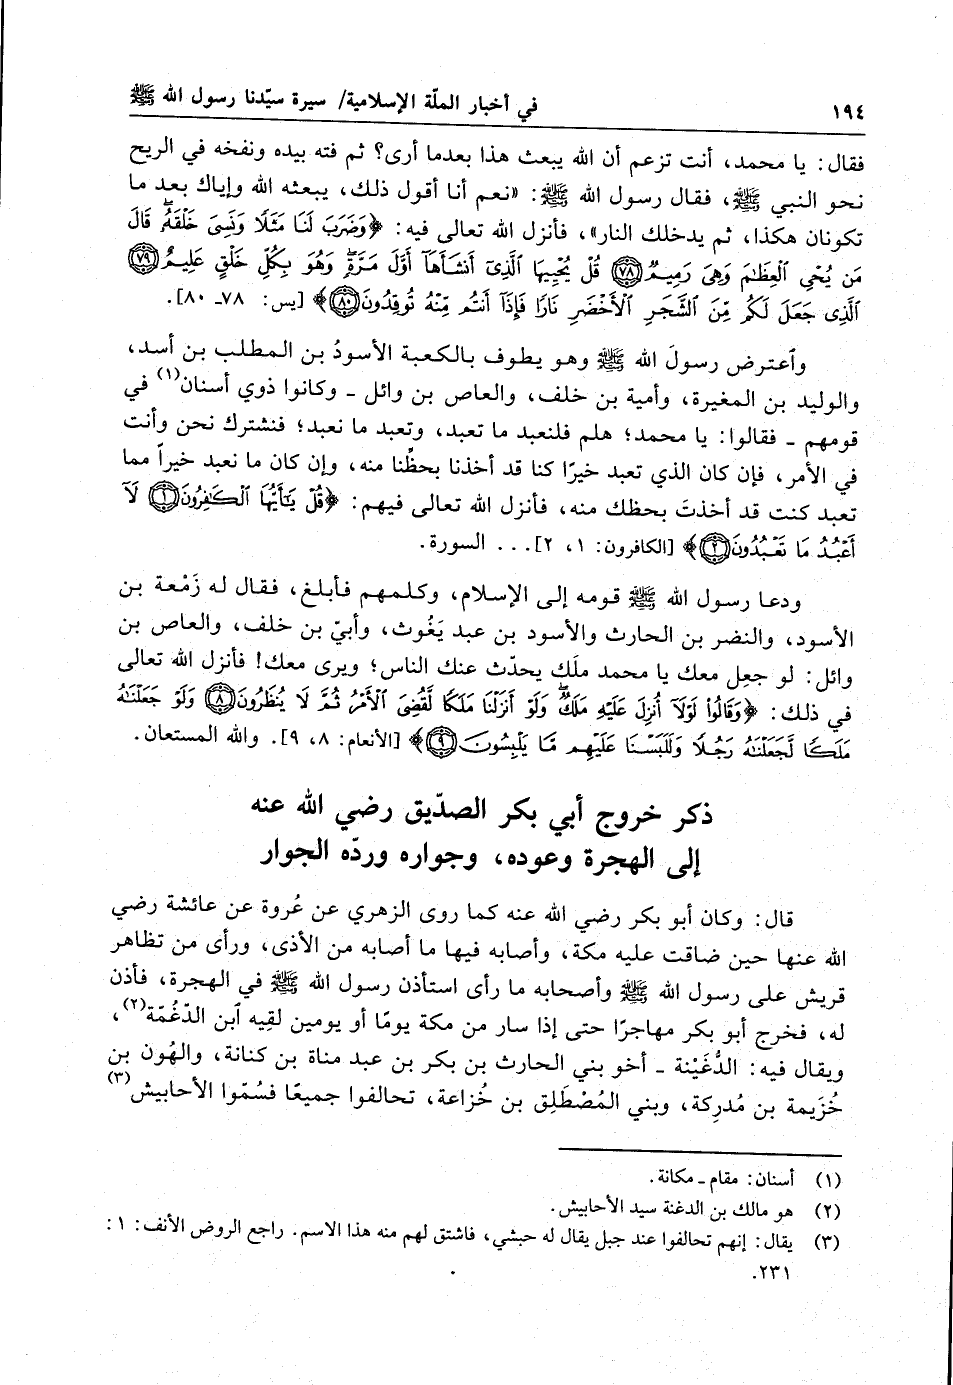 ١٩٤
في أخبار الملّة الإسلامية/ سيرة سيّدنا رسول الله ﷺ
فقال: يا محمد، أنت تزعم أن الله يبعث هذا بعدما أرى؟ ثم فته بيده ونفخه في الريح
نحو النبي ﷺ، فقال رسول الله ﷺ: «نعم أنا أقول ذلك، يبعثه الله وإياك بعد ما
تكونان هكذا، ثم يدخلك النار»، فأنزل الله تعالى فيه: ﴿وَضَرَبَ لَنَا مَثَلًا وَنَسِيَ خَلْقَهُۥ قَالَ
مَن يُحْيِ ٱلْعِظَٰمَ وَهِيَ رَمِيمٌ ﴿٧٨﴾ قُلْ يُحْيِيهَا ٱلَّذِىٓ أَنشَأَهَآ أَوَّلَ مَرَّةٍ وَهُوَ بِكُلِّ خَلْقٍ عَلِيمٌ ﴿٧٩﴾
ٱلَّذِى جَعَلَ لَكُم مِّنَ ٱلشَّجَرِ ٱلْأَخْضَرِ نَارًا فَإِذَآ أَنتُم مِّنْهُ تُوقِدُونَ ﴿٨٠﴾﴾ [يس: ٧٨ـ ٨٠].
وٱعترض رسولَ الله ﷺ وهو يطوف بالكعبة الأسودُ بن المطلب بن أسد،
والوليد بن المغيرة، وأمية بن خلف، والعاص بن وائل ـ وكانوا ذوي أسنان(١) في
قومهم ـ فقالوا: يا محمد؛ هلم فلنعبد ما تعبد، وتعبد ما نعبد؛ فنشترك نحن وأنت
في الأمر، فإن كان الذي تعبد خيرًا كنا قد أخذنا بحظِّنا منه، وإن كان ما نعبد خيراً مما
تعبد كنت قد أخذتَ بحظك منه، فأنزل الله تعالى فيهم: ﴿قُلْ يَٰٓأَيُّهَا ٱلْكَٰفِرُونَ ﴿١﴾ لَآ
أَعْبُدُ مَا تَعْبُدُونَ ﴿٢﴾﴾ [الكافرون: ١، ٢]... السورة.
ودعا رسول الله ﷺ قومه إلى الإسلام، وكلمهم فأبلغ، فقال له زَمْعة بن
الأسود، والنضر بن الحارث والأسود بن عبد يَغُوث، وأبيّ بن خلف، والعاص بن
وائل: لو جعِل معك يا محمد ملَك يحدّث عنك الناس؛ ويرى معك! فأنزل الله تعالى
في ذلك: ﴿وَقَالُوا۟ لَوْلَآ أُنزِلَ عَلَيْهِ مَلَكٌ وَلَوْ أَنزَلْنَا مَلَكًا لَّقُضِيَ ٱلْأَمْرُ ثُمَّ لَا يُنظَرُونَ ﴿٨﴾ وَلَوْ جَعَلْنَٰهُ
مَلَكًا لَّجَعَلْنَٰهُ رَجُلًا وَلَلَبَسْنَا عَلَيْهِم مَّا يَلْبِسُونَ ﴿٩﴾﴾ [الأنعام: ٨، ٩]. والله المستعان.
ذكر خروج أبي بكر الصدّيق رضي الله عنه
إلى الهجرة وعوده، وجواره وردّه الجوار
قال: وكان أبو بكر رضي الله عنه كما روى الزهري عن عُروة عن عائشة رضي
الله عنها حين ضاقت عليه مكة، وأصابه فيها ما أصابه من الأذى، ورأى من تظاهر
قريش على رسول الله ﷺ وأصحابه ما رأى استأذن رسول الله ﷺ في الهجرة، فأذن
له، فخرج أبو بكر مهاجرًا حتى إذا سار من مكة يومًا أو يومين لقِيه ٱبن الدّغُمّة(٢)،
ويقال فيه: الدُّغَيْنة ـ أخو بني الحارث بن بكر بن عبد مناة بن كنانة، والهُون بن
خُزَيمة بن مُدرِكة، وبني المُصْطَلِق بن خُزاعة، تحالفوا جميعًا فسُمّوا الأحابيش(٣)
(١) أسنان: مقام ـ مكانة.
(٢) هو مالك بن الدغنة سيد الأحابيش.
(٣) يقال: إنهم تحالفوا عند جبل يقال له حبشي، فاشتق لهم منه هذا الاسم. راجع الروض الأنف: ١:
٢٣١.